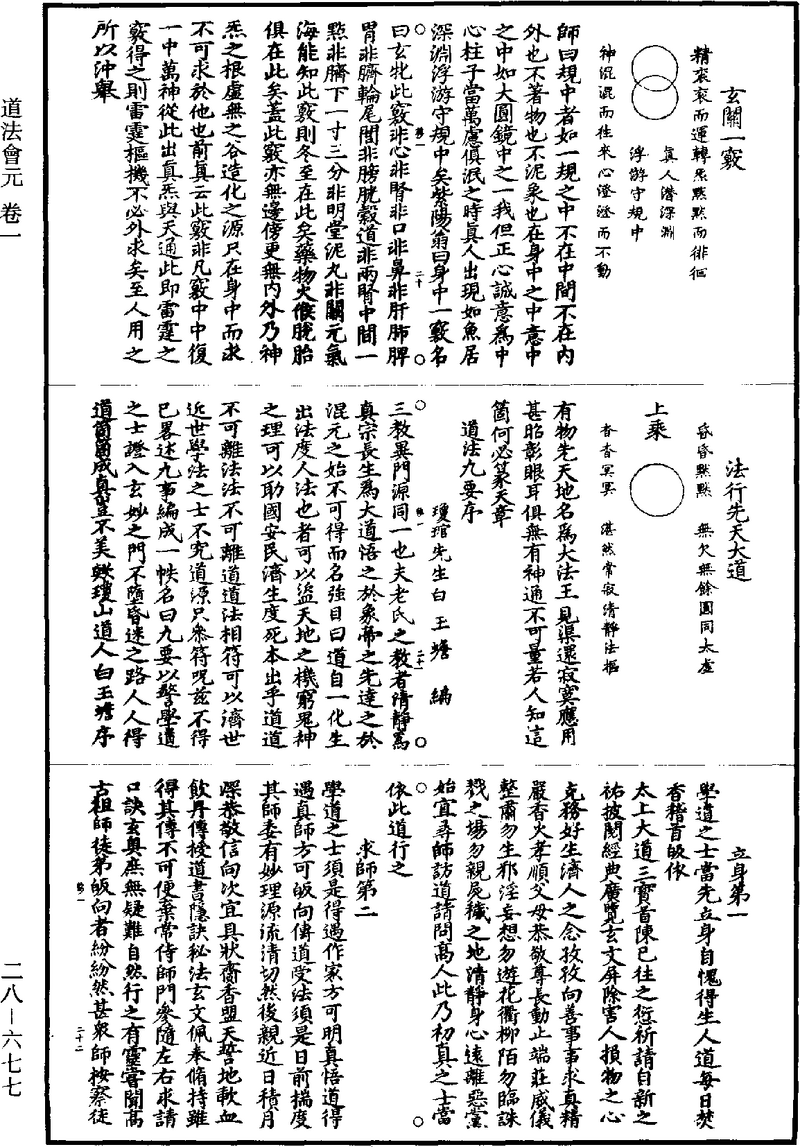 道法會元 卷一
二八—六七七
玄關一竅
精衮衮而運轉炁默默而徘徊
真人潛深淵
浮游守規中
神混混而往來心澄澄而不動
師曰規中者如一規之中不在中間不在內
外也不著物也不泥象也在身中之中意中
之中如大圓鏡中之一我但正心誠意為中
心柱子當萬慮俱泯之時真人出現如魚居
深淵浮游守規中矣紫陽翁曰身中一竅名
曰玄牝此竅非心非腎非口非鼻非肝肺脾
胃非臍輪尾閭非膀胱穀道非兩腎中間一
點非臍下一寸三分非明堂泥丸非關元氣
海能知此竅則冬至在此矣藥物火候脫胎
俱在此矣蓋此竅亦無邊傍更無內外乃神
炁之根虛無之谷造化之源只在身中而求
不可求於他也前真云此竅非凡竅中中復
一中萬神從此出真炁與天通此即雷霆之
竅得之則雷霆樞機不必外求矣至人用之
所以沖舉
法行先天大道
昏昏默默 無欠無餘圓同太虛
上乘
杳杳冥冥 湛然常寂清靜法樞
有物先天地名為大法王見渠還寂寞應用
甚昭彰眼耳俱無有神通不可量若人知這
箇何必篆天章
道法九要序
瓊琯先生白玉蟾編
三教異門源同一也夫老氏之教者清靜為
真宗長生為大道悟之於象帝之先達之於
混元之始不可得而名強目曰道自一化生
出法度人法也者可以盜天地之機窮鬼神
之理可以助國安民濟生度死本出乎道道
不可離法法不可離道道法相符可以濟世
近世學法之士不究道源只參符呪茲不得
已畧述九事編成一帙名曰九要以警學道
之士證入玄妙之門不墮昏迷之路人人得
道箇箇成真豈不美歟瓊山道人白玉蟾序
立身第一
學道之士當先立身自愧得生人道每日焚
香稽首皈依
太上大道三寶首陳已往之愆祈請自新之
祐披閱經典廣覽玄文屏除害人損物之心
克務好生濟人之念孜孜向善事事求真精
嚴香火孝順父母恭敬尊長動止端莊威儀
整肅勿生邪淫妄想勿遊花衢柳陌勿臨誅
戮之場勿親屍穢之地清靜身心遠離惡黨
始宜尋師訪道請問高人此乃初真之士當
依此道行之
求師第二
學道之士須是得遇作家方可明真悟道得
遇真師方可皈向傳道受法須是日前揣度
其師委有妙理源流清切然後親近日積月
深恭敬信向次宜具狀齎香盟天誓地歃血
飲丹傳授道書隱訣秘法玄文佩奉脩持雖
得其傳不可便棄常侍師門參隨左右求請
口訣玄奧庶無疑難自然行之有靈嘗聞高
古祖師徒弟皈向者紛紛然甚衆師按察徒